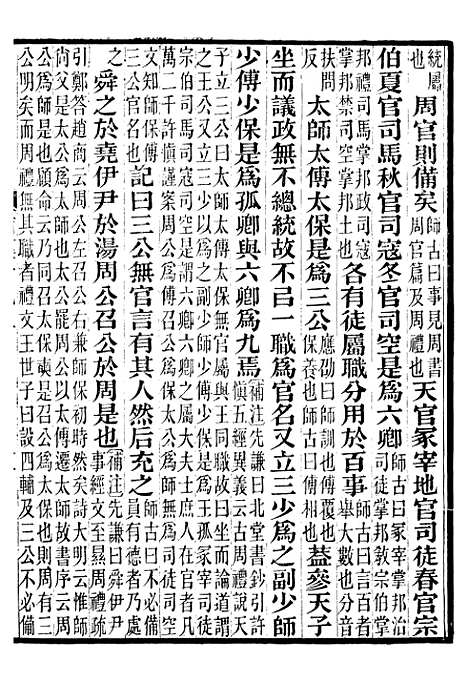 統屬也周官則備矣師古曰事見周書周官篇及周禮也天官冢宰地官司徒春官宗
伯夏官司馬秋官司寇冬官司空是爲六卿師古曰冢宰掌邦治司徒掌邦敎宗伯掌
邦禮司馬掌邦政司寇掌邦禁司空掌邦土也各有徒屬職分用於百事師古曰言百者舉大數也分音
扶問反太師太傅太保是爲三公應劭曰師訓也傅覆也保養也師古曰傅相也蓋參天子
坐而議政無不總統故不㠯一職爲官名又立三少爲之副少師
少傅少保是爲孤卿與六卿爲九焉補注先謙曰北堂書鈔引許愼五經異義云古周禮說天
子立三公曰太師太傅太保無官屬與王同職故曰坐而論道謂
之王公又立三少以爲之副曰少師少傅少保是爲三孤冢宰司徒
宗伯司馬司寇司空是爲六卿之屬大夫士庶人在官者凡
萬二千許愼謹案周公爲傅召公爲保太公爲師無爲司徒司空
文知師保傅三公官名也記曰三公無官言有其人然后充之師古曰不必備員有德者乃處
之舜之於堯伊尹於湯周公召公於周是也補注先謙曰舜伊尹事經文至㬎周禮疏
引鄭答趙商云周公左召公右兼師保初時然矣詩大明云惟師
尚父是太公爲太師也太公薨周公以太傅遷太師故書序云周
公爲師是也顧命云乃同召太保奭是召公爲太保也
公明矣而周禮無其職者禮文王世子曰設四輔及三公不必備